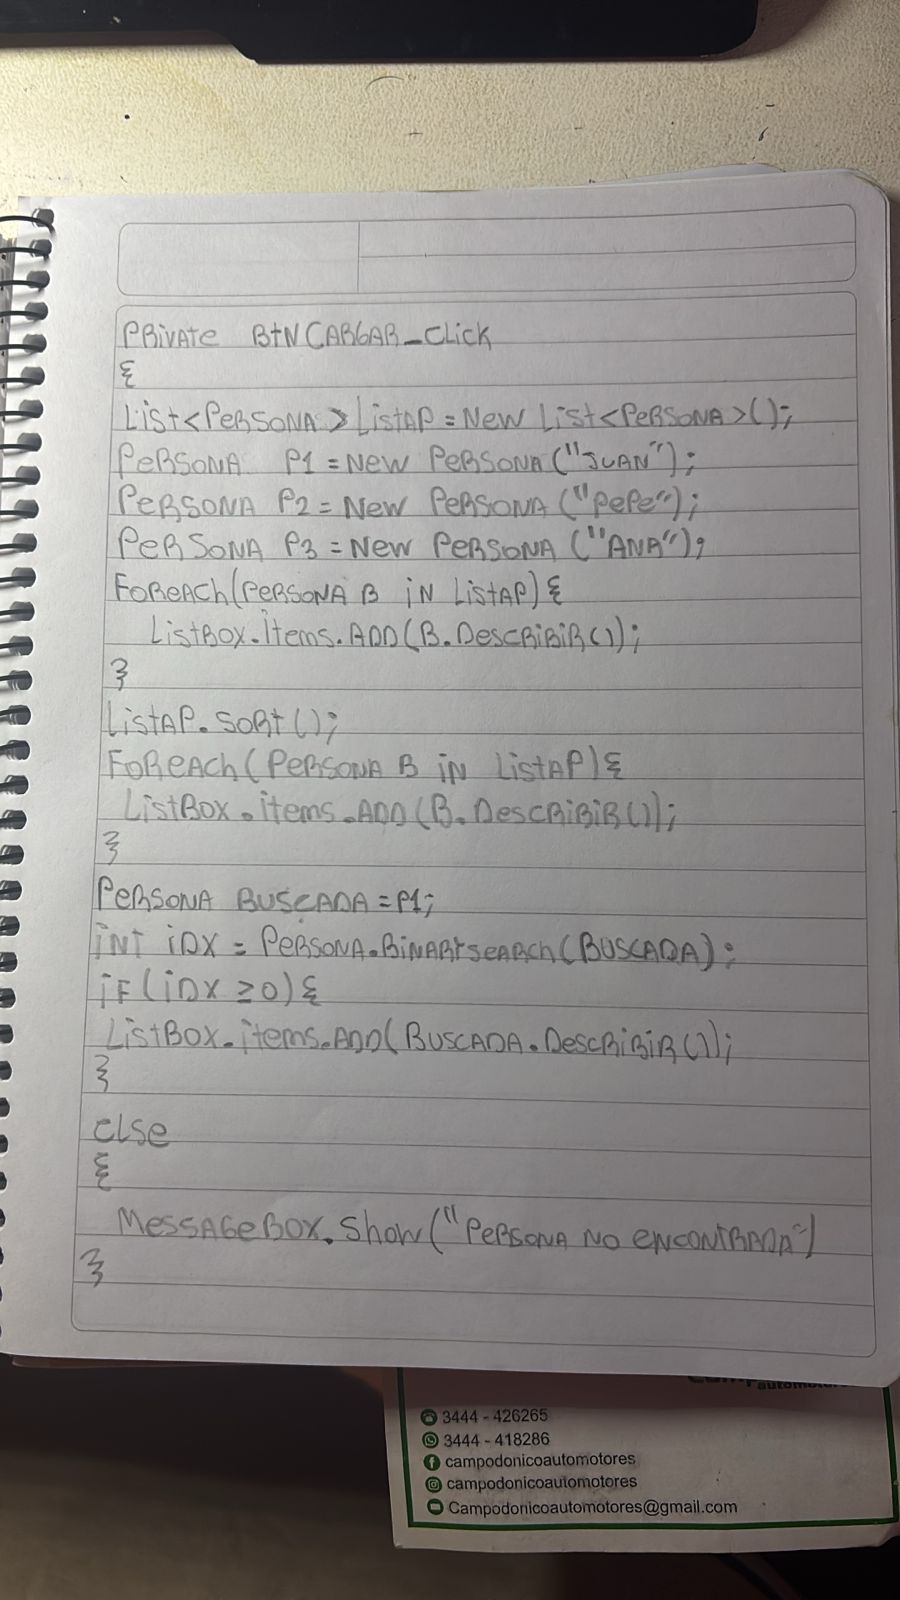 PRIVATE BtN CARGAR_CLICK
{
LIST<PERSONA> LISTAP = NEW LIST<PERSONA>();
PERSONA P1 = NEW PERSONA("JUAN");
PERSONA P2 = NEW PERSONA ("PEPE");
PERSONA P3 = NEW PERSONA ("ANA");
FOREACH(PERSONA B IN LISTAP){
LISTBOX.ITEMS.ADD(B.DESCRIBIR());
}
LISTAP.SORT();
FOREACH(PERSONA B IN LISTAP){
LISTBOX.ITEMS.ADD(B.DESCRIBIR());
}
PERSONA BUSCADA = P1;
INT IDX = PERSONA.BINARYSEARCH(BUSCADA);
IF(IDX ≥ 0){
LISTBOX.ITEMS.ADD(BUSCADA.DESCRIBIR());
}
ELSE
{
MESSAGEBOX.SHOW("PERSONA NO ENCONTRADA")
}
3444 - 426265
3444 - 418286
campodonicoautomotores
campodonicoautomotores
Campodonicoautomotores@gmail.com